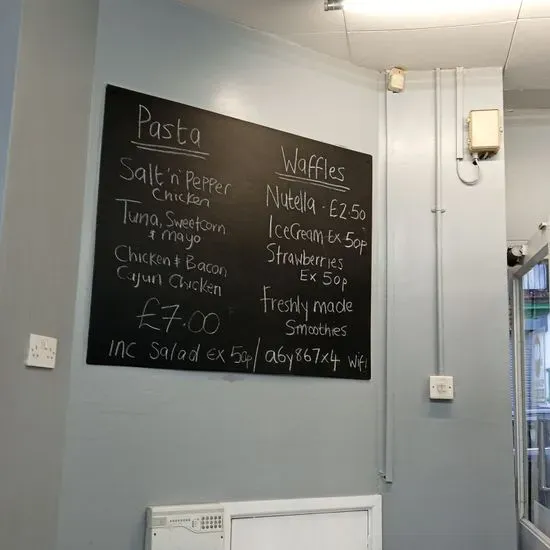 Pasta
Salt 'n' Pepper
Chicken
Tuna, Sweetcorn
& mayo
Chicken & Bacon
Cajun Chicken
£7.00
INC Salad Ex 50p
Waffles
Nutella - £2.50
Ice Cream Ex 50p
Strawberries
Ex 50p
Freshly made
Smoothies
/ a6y867x4 Wifi